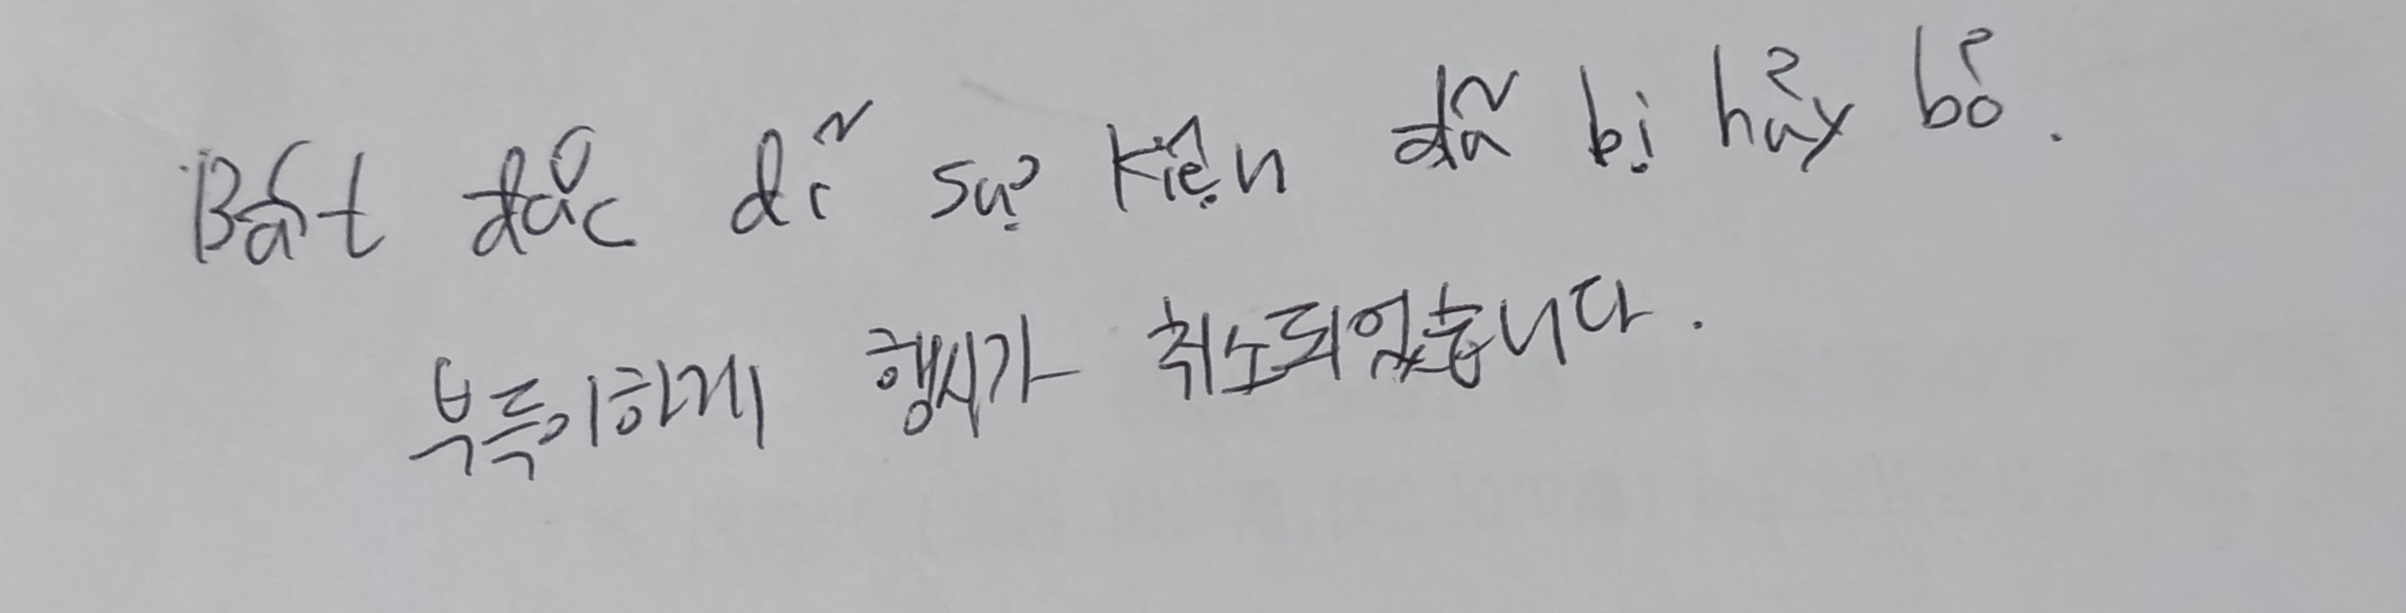 Bất đắc dĩ sự kiện đã bị hủy bỏ.
부득이하게 행사가 취소되었습니다.